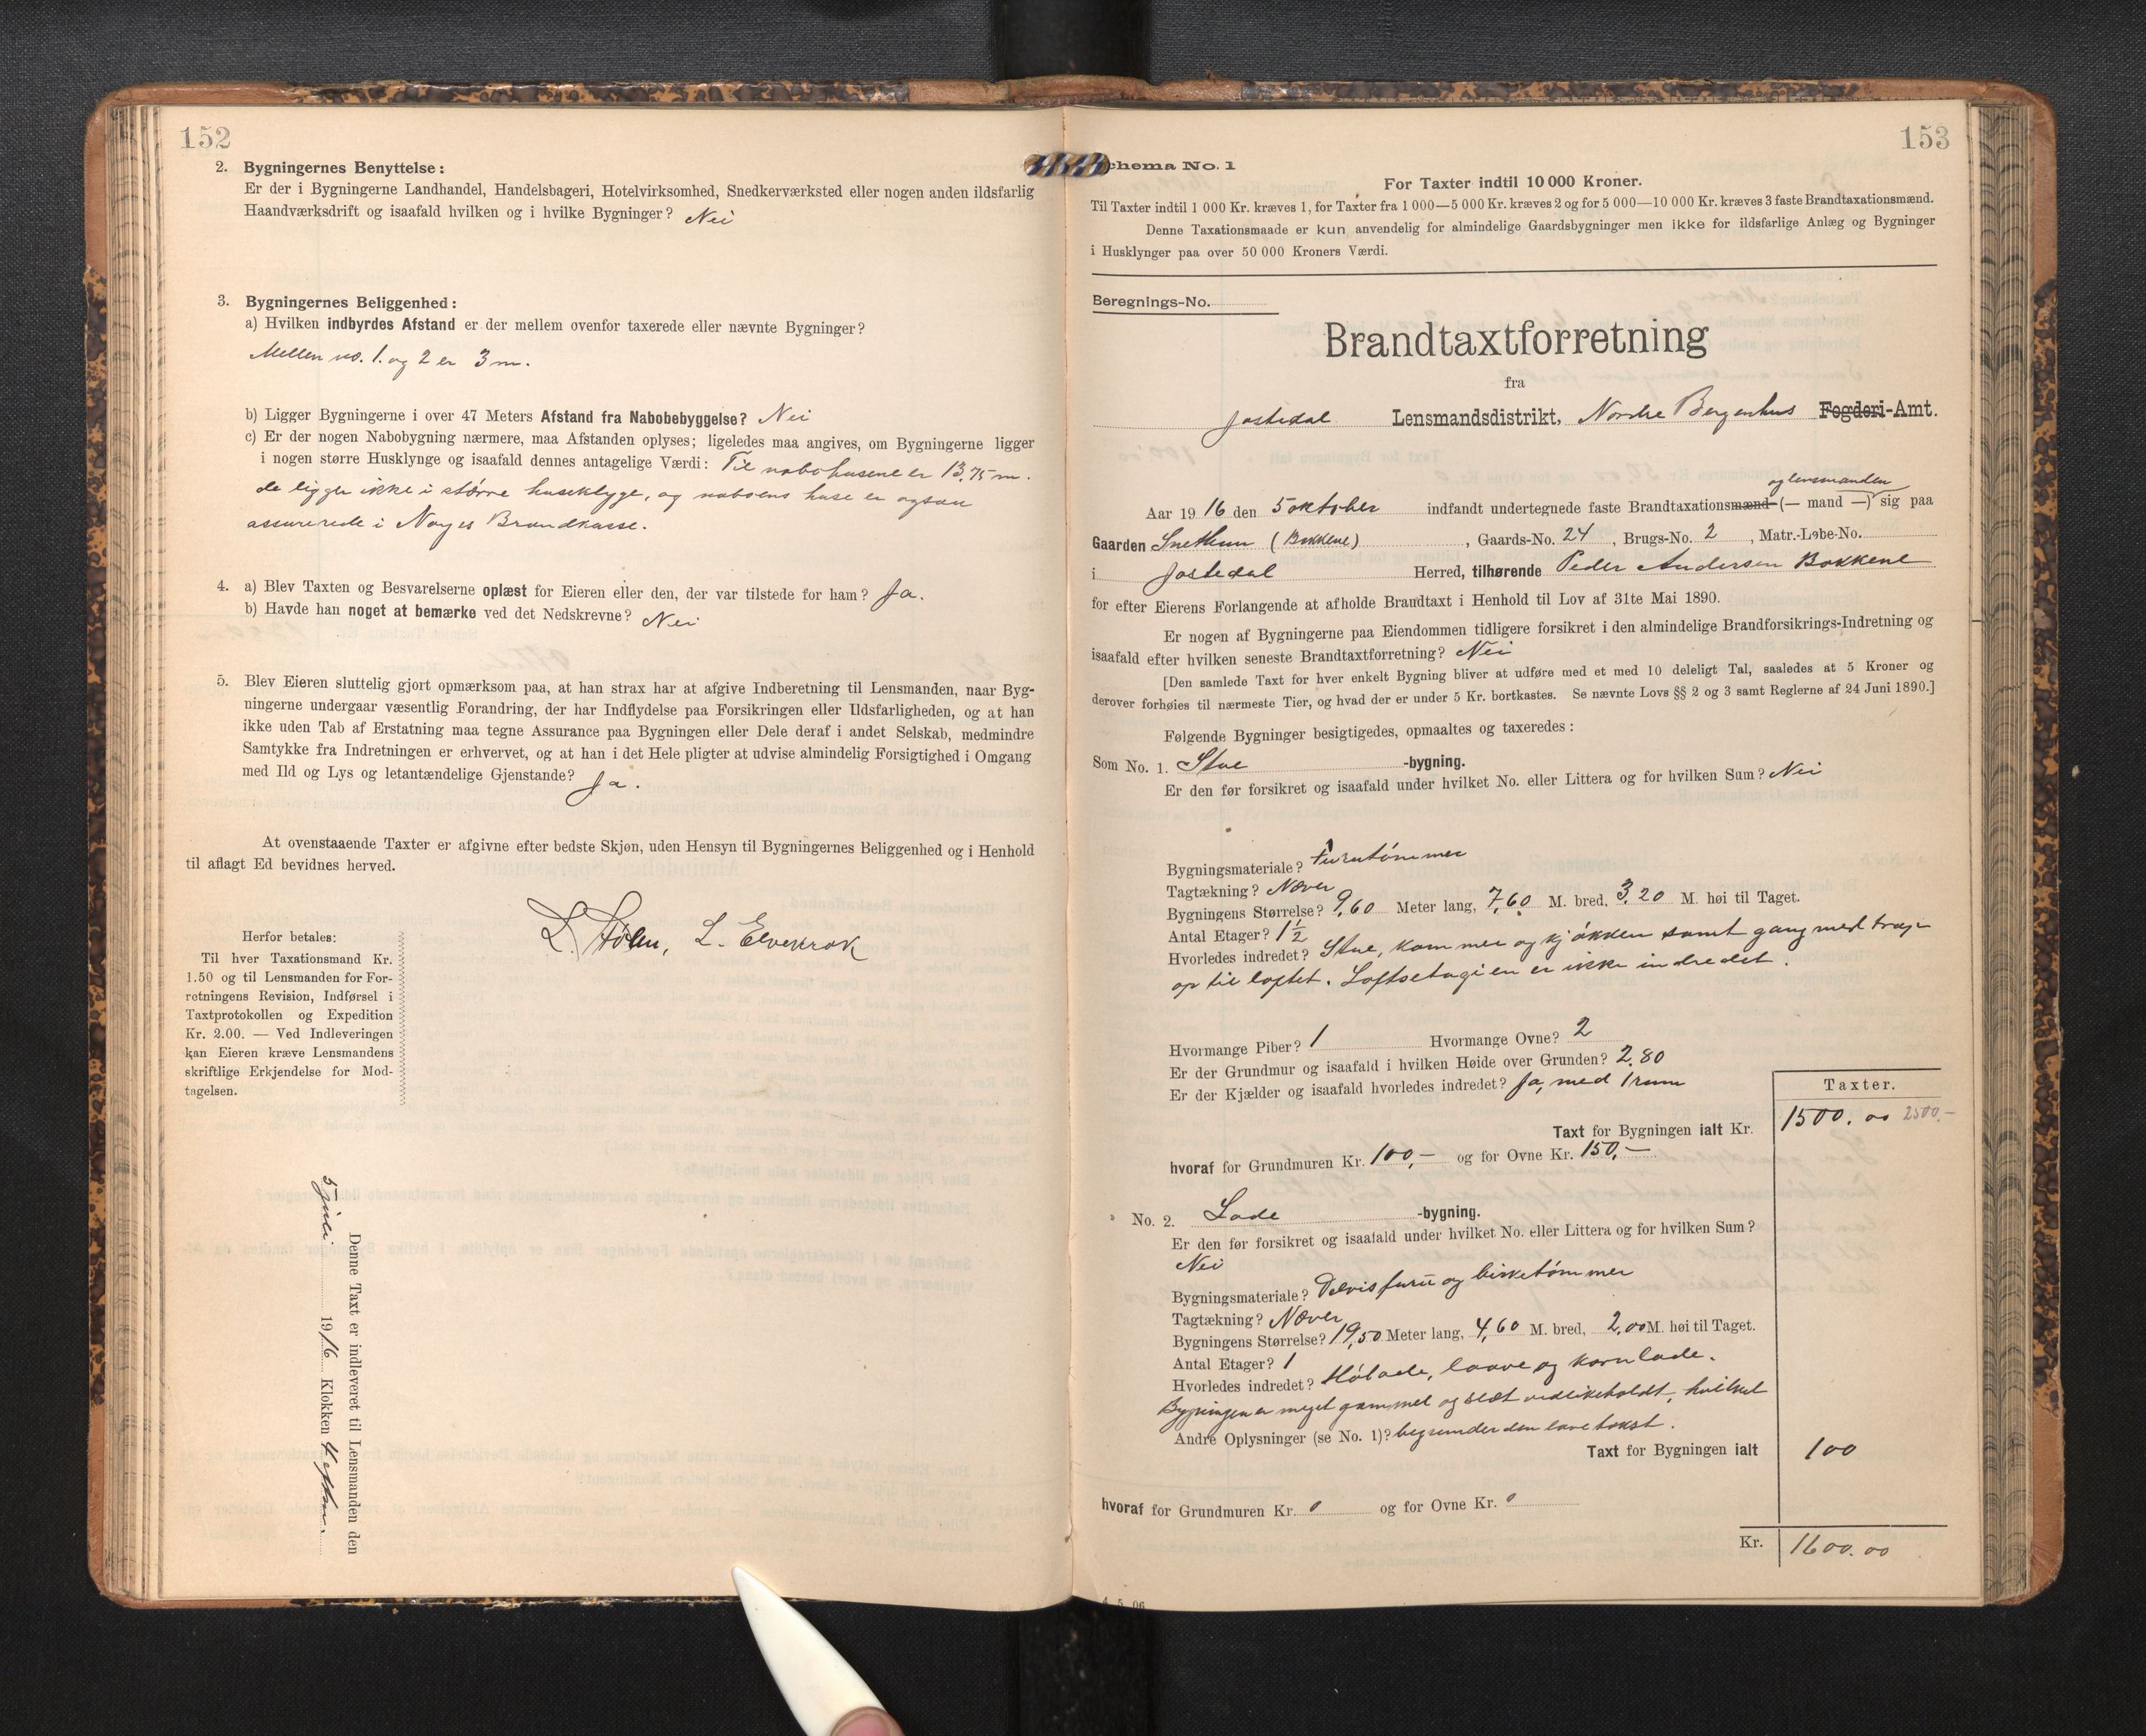 152
2. Bygningernes Benyttelse:
Er der i Bygningerne Landhandel, Handelsbageri, Hotelvirksomhed, Snedkerværksted eller nogen anden ildsfarlig
Haandværksdrift og isaafald hvilken og i hvilke Bygninger? Nei
3. Bygningernes Beliggenhed:
a) Hvilken indbyrdes Afstand er der mellem ovenfor taxerede eller nævnte Bygninger?
Mellem no. 1. og 2 er 3 m.
b) Ligger Bygningerne i over 47 Meters Afstand fra Nabobebyggelse? Nei
c) Er der nogen Nabobygning nærmere, maa Afstanden oplyses; ligeledes maa angives, om Bygningerne ligger
i nogen større Husklynge og isaafald dennes antagelige Værdi: Til nabohusene er 13,75 m.
de ligger ikke i större huseklyge, og naboens huse er ogsaa
assurerede i Norges Brandkasse.
4. a) Blev Taxten og Besvarelserne oplæst for Eieren eller den, der var tilstede for ham? Ja.
b) Havde han noget at bemærke ved det Nedskrevne? Nei
5. Blev Eieren sluttelig gjort opmærksom paa, at han strax har at afgive Indberetning til Lensmanden, naar Byg-
ningerne undergaar væsentlig Forandring, der har Indflydelse paa Forsikringen eller Ildsfarligheden, og at han
ikke uden Tab af Erstatning maa tegne Assurance paa Bygningen eller Dele deraf i andet Selskab, medmindre
Samtykke fra Indretningen er erhvervet, og at han i det Hele pligter at udvise almindelig Forsigtighed i Omgang
med Ild og Lys og letantændelige Gjenstande? Ja.
At ovenstaaende Taxter er afgivne efter bedste Skjøn, uden Hensyn til Bygningernes Beliggenhed og i Henhold
til aflagt Ed bevidnes herved.
L. Elvekrok
Herfor betales:
Til hver Taxationsmand Kr.
1.50 og til Lensmanden for For-
retningens Revision, Indførsel i
Taxtprotokollen og Expedition
Kr. 2.00. — Ved Indleveringen
kan Eieren kræve Lensmandens
skriftlige Erkjendelse for Mod-
tagelsen.
Denne Taxt er indleveret til Lensmanden den
5 juli 1916 Klokken 4 eftm.
153
chema No. 1
For Taxter indtil 10 000 Kroner.
Til Taxter indtil 1 000 Kr. kræves 1, for Taxter fra 1 000—5 000 Kr. kræves 2 og for 5 000—10 000 Kr. kræves 3 faste Brandtaxationsmænd.
Denne Taxationsmaade er kun anvendelig for almindelige Gaardsbygninger men ikke for ildsfarlige Anlæg og Bygninger
i Husklynger paa over 50 000 Kroners Værdi.
Beregnings-No.
Brandtaxtforretning
fra
Jostedal Lensmandsdistrikt, Nordre Bergenhus Fogderi-Amt.
og lensmanden
Aar 1916 den 5 oktober indfandt undertegnede faste Brandtaxationsmænd (— mand —) sig paa
Gaarden Snethun (Bakkene), Gaards-No. 24, Brugs-No. 2, Matr.-Løbe-No.
i Jostedal Herred, tilhørende Peder Andersen Bakkene
for efter Eierens Forlangende at afholde Brandtaxt i Henhold til Lov af 31te Mai 1890.
Er nogen af Bygningerne paa Eiendommen tidligere forsikret i den almindelige Brandforsikrings-Indretning og
isaafald efter hvilken seneste Brandtaxtforretning? Nei
[Den samlede Taxt for hver enkelt Bygning bliver at udføre med et med 10 deleligt Tal, saaledes at 5 Kroner og
derover forhøies til nærmeste Tier, og hvad der er under 5 Kr. bortkastes. Se nævnte Lovs §§ 2 og 3 samt Reglerne af 24 Juni 1890.]
Følgende Bygninger besigtigedes, opmaaltes og taxeredes:
Som No. 1. Stue -bygning.
Er den før forsikret og isaafald under hvilket No. eller Littera og for hvilken Sum? Nei
Bygningsmateriale? Furutömmer
Tagtækning? Næver
Bygningens Størrelse? 9,60 Meter lang, 7,60 M. bred, 3,20 M. høi til Taget.
Antal Etager? 1 1/2
Hvorledes indredet? Stue, kammer og kjökken samt gang med trap
op til loftet. Loftsetagien er ikke indredet.
Hvormange Piber? 1 Hvormange Ovne? 2
Er der Grundmur og isaafald i hvilken Høide over Grunden? 2,80
Er der Kjælder og isaafald hvorledes indredet? Ja, med 1 rum
Taxter.
Taxt for Bygningen ialt Kr. 1500.00 2500.-
hvoraf for Grundmuren Kr. 100,- og for Ovne Kr. 150,-
No. 2. Lade -bygning.
Er den før forsikret og isaafald under hvilket No. eller Littera og for hvilken Sum?
Nei
Bygningsmateriale? Delvis furu og birketömmer
Tagtækning? Næver
Bygningens Størrelse? 19,50 Meter lang, 4,60 M. bred, 2,00 M. høi til Taget.
Antal Etager? 1
Hvorledes indredet? Hölade, laave og kornlade.
Bygningen er meget gammel og slet vedlikeholdt, hvilket
Andre Oplysninger (se No. 1)? begrunder den lave takst.
Taxt for Bygningen ialt 100
hvoraf for Grundmuren Kr. 0 og for Ovne Kr. 0
Kr. 1600.00
4. 5. 06